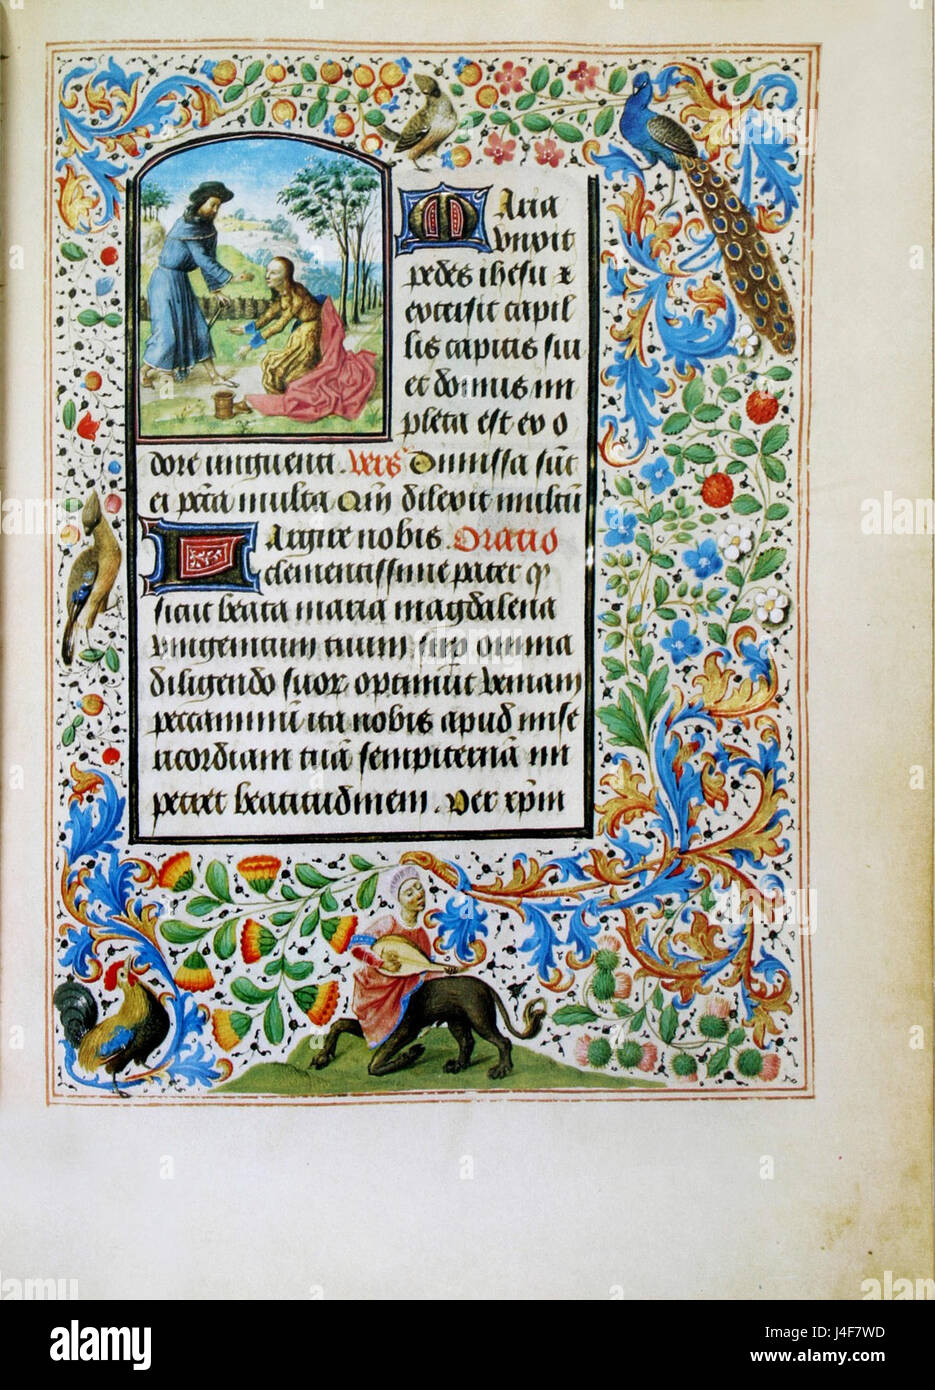 Maria
vnxit
pedes ihesu z
extersit capil
lis capitis sui
et domus im
pleta est ex o
dore unguenti. Vers Dimissa sūt
ei pctā multa Qm̄ dilexit multū
Largire nobis. Oratio
clementissime pater q
sicut beata maria magdalena
vnigenitum tuum sup omnia
diligendo suor optinuit veniam
peccaminū ita nobis apud mise
ricordiam tuā sempiternā im
petret beatitudinem. Per xp̄m
alamy
alamy
Image ID: J4F7WD
www.alamy.com